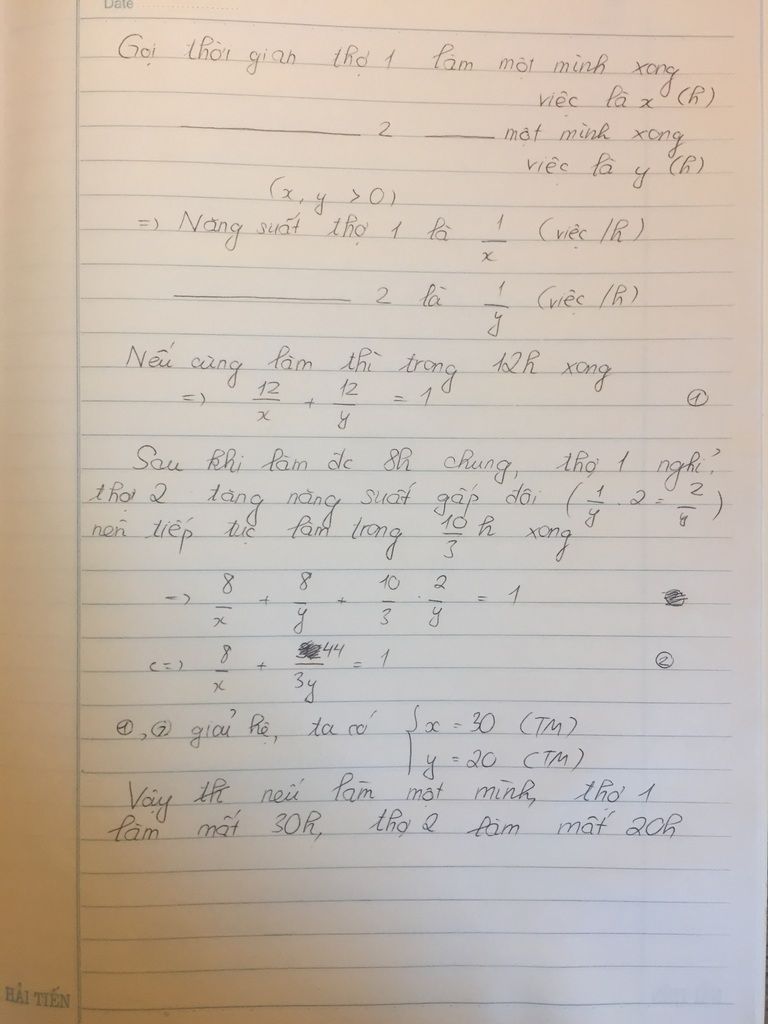 Date
Gọi thời gian thợ 1 làm một mình xong
việc là x (h)
2 một mình xong
việc là y (h)
(x, y > 0)
=> Năng suất thợ 1 là 1/x (việc/h)
2 là 1/y (việc/h)
Nếu cùng làm thì trong 12h xong
=> 12/x + 12/y = 1 ①
Sau khi làm đc 8h chung, thợ 1 nghỉ,
thợ 2 tăng năng suất gấp đôi (1/y . 2 = 2/y)
nên tiếp tục làm trong 10/3 h xong
=> 8/x + 8/y + 10/3 . 2/y = 1
<=> 8/x + 44/3y = 1 ②
①, ② giải hệ, ta có { x = 30 (TM)
y = 20 (TM)
Vậy th nếu làm một mình, thợ 1
làm mất 30h, thợ 2 làm mất 20h
HẢI TIẾN